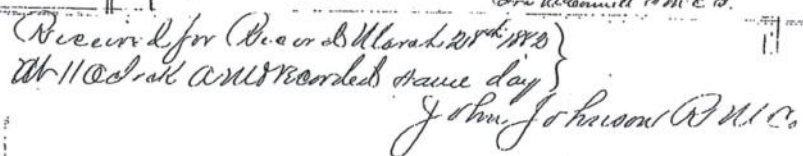 McConnell R M C O.
Received for Record March 28th 1883
At 11 Oclock A M & Recorded same day
John Johnson R M Co